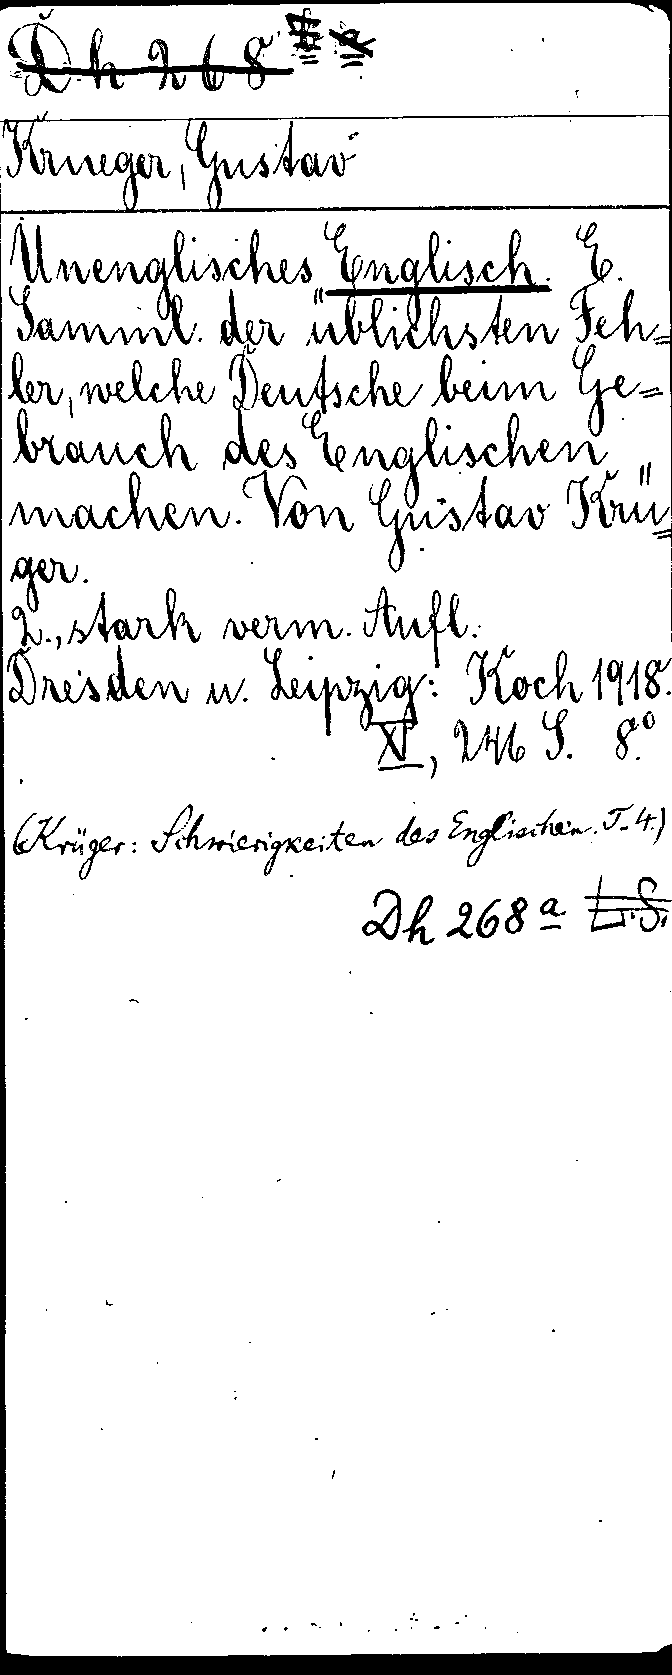 Dh 268 a
Krueger, Gustav
Unenglisches Englisch. E.
Samml. der üblichsten Feh=
ler, welche Deutsche beim Ge=
brauch des Englischen
machen. Von Gustav Krü=
ger.
2., stark verm. Aufl.
Dresden u. Leipzig: Koch 1918.
XI, 246 S. 8°.
(Krüger: Schwierigkeiten des Englischen. T. 4.)
Dh 268 a L.S.